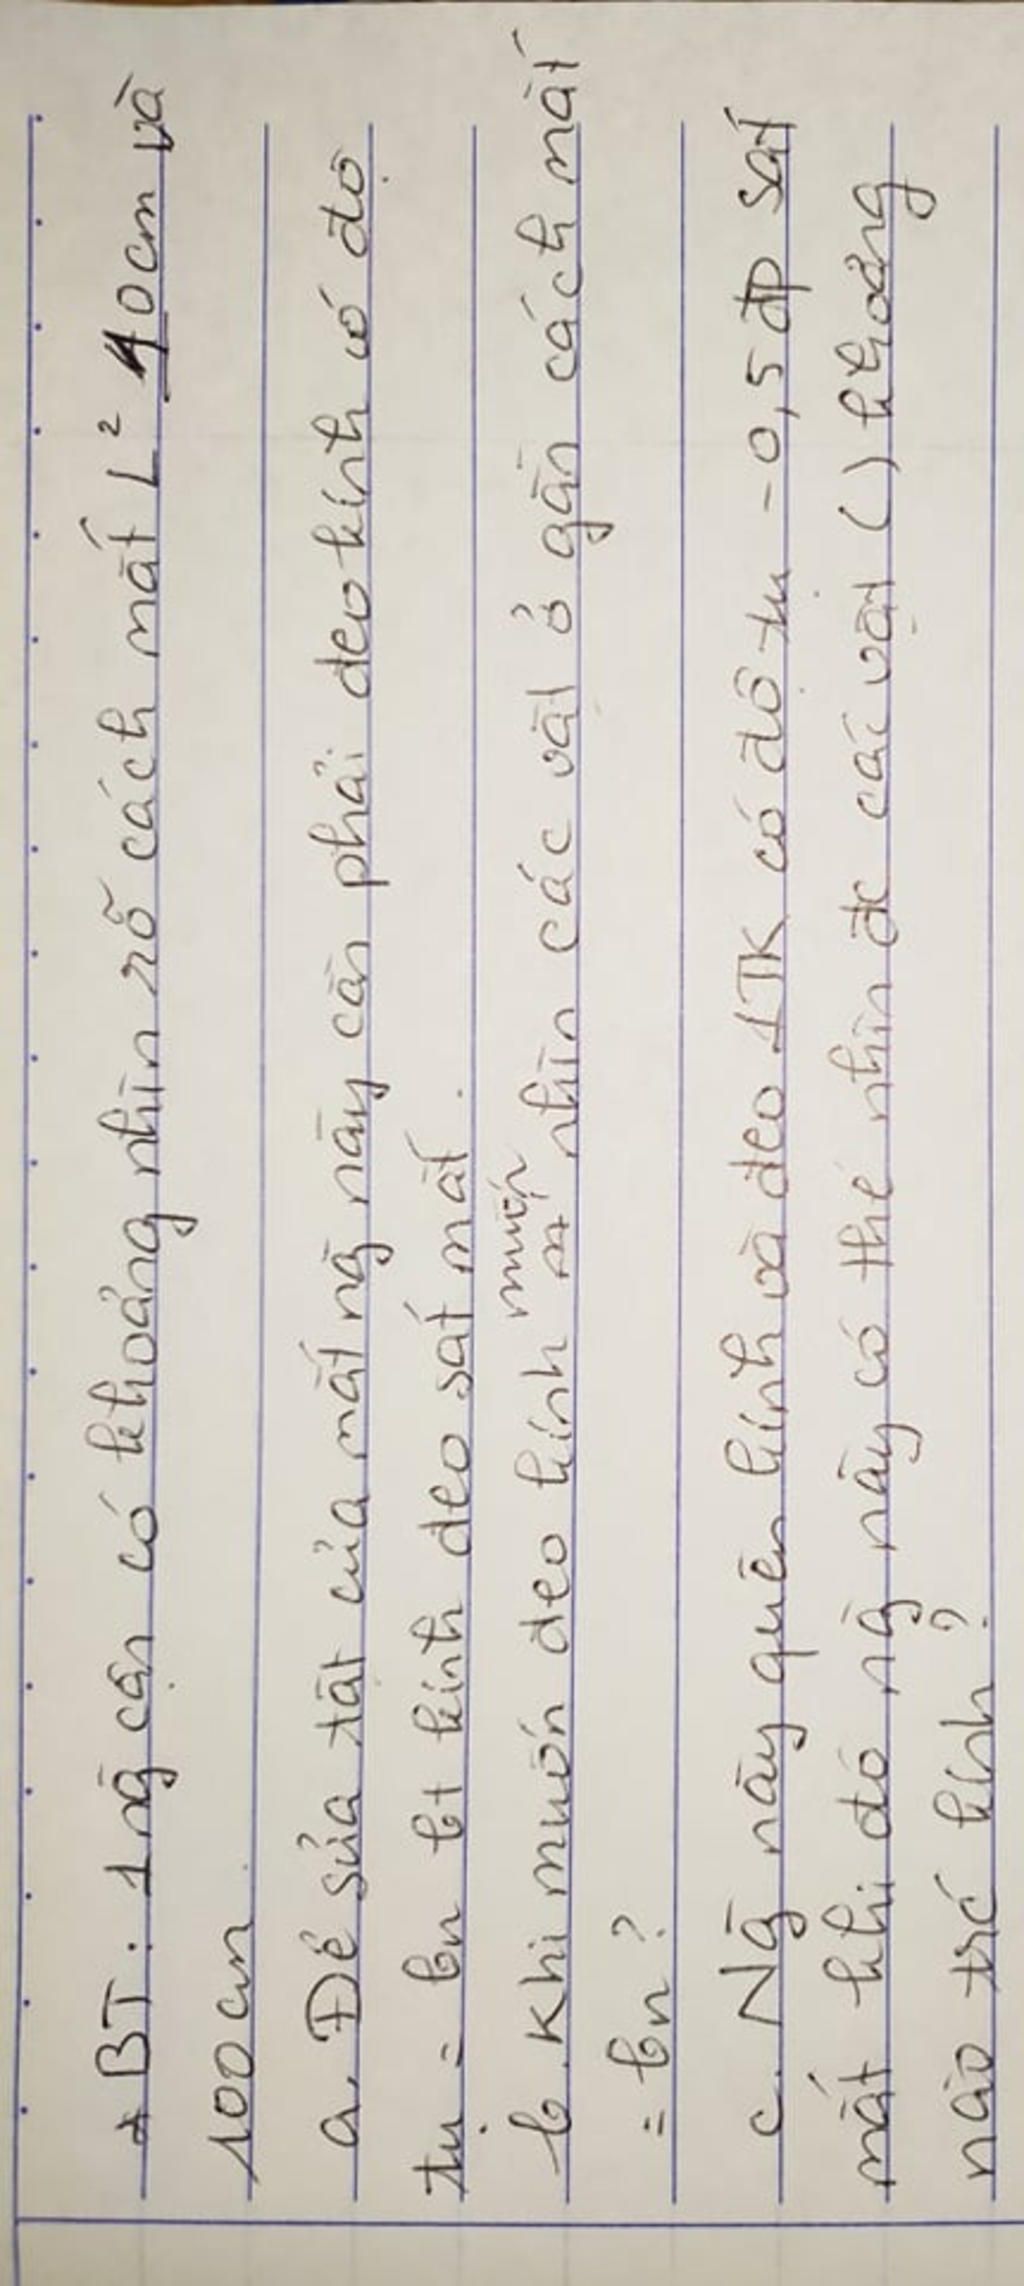 * BT: 1 ng̀ cận có khoảng nhìn rõ cách mắt L² 40cm và
100cm.
a. Để sửa tật của mắt ng̀ này cần phải đeo kính có độ
tụ = bn bt kính đeo sát mắt.
b. Khi muốn đeo kính muốn nhìn các vật ở gần cách mắt
= bn?
c. Ng̀ này quên kính và đeo 1TK có độ tụ -0,5 đp sát
mắt khi đó ng̀ này có thể nhìn đc các vật () khoảng
nào trc kính?